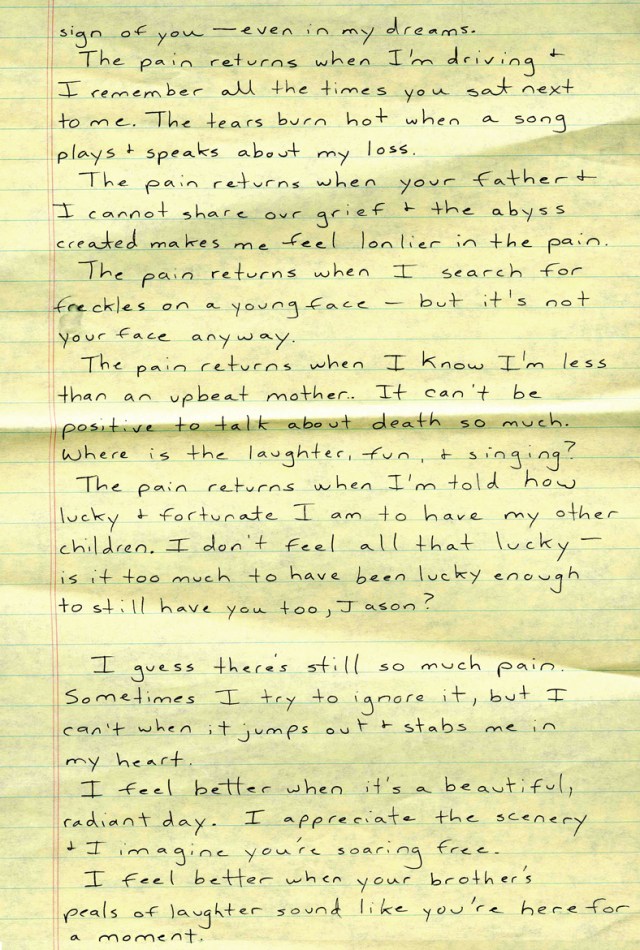 sign of you — even in my dreams.
The pain returns when I'm driving +
I remember all the times you sat next
to me. The tears burn hot when a song
plays + speaks about my loss.
The pain returns when your father +
I cannot share our grief + the abyss
created makes me feel lonlier in the pain.
The pain returns when I search for
freckles on a young face — but it's not
your face anyway.
The pain returns when I know I'm less
than an upbeat mother.. It can't be
positive to talk about death so much.
Where is the laughter, fun, + singing?
The pain returns when I'm told how
lucky + fortunate I am to have my other
children. I don't feel all that lucky —
is it too much to have been lucky enough
to still have you too, Jason?
I guess there's still so much pain.
Sometimes I try to ignore it, but I
can't when it jumps out + stabs me in
my heart.
I feel better when it's a beautiful,
radiant day. I appreciate the scenery
+ I imagine you're soaring free.
I feel better when your brother's
peals of laughter sound like you're here for
a moment.